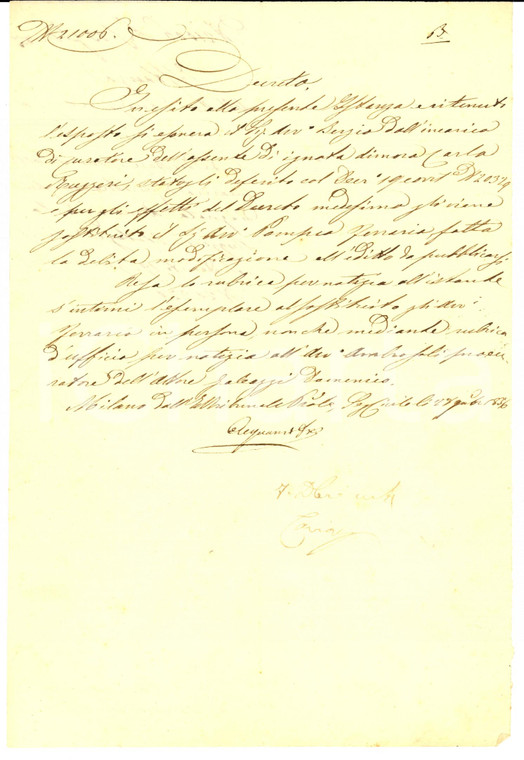 N. 21006. B.
Decreto.
Inesito alla presente Istanza e ritenuto
l'esposto si esonera il Sig. Avv. Sergio dall'incarico
di curatore dell'assente d'ignota dimora Carlo
Ruggeri, statogli deferito col Decr. 19 corr. N. 20329
e per gli effetti del Decreto medesimo gli viene
sostituito il Sig. Avv. Pompeo Ferrario, fatta
la debita modificazione all'Editto da pubblicarsi.
Resa la rubrica per notizia all'istante
s'intimi l'esemplare al sostituito Sig. Avv.
Ferrario in persona nonché mediante rubrica
d'ufficio per notizia all'Avv. Ambrosoli procu-
ratore dell'attore Galeazzi Domenico.
Milano dall'I.R. Tribunale Prov. Sez. Civile li 1856